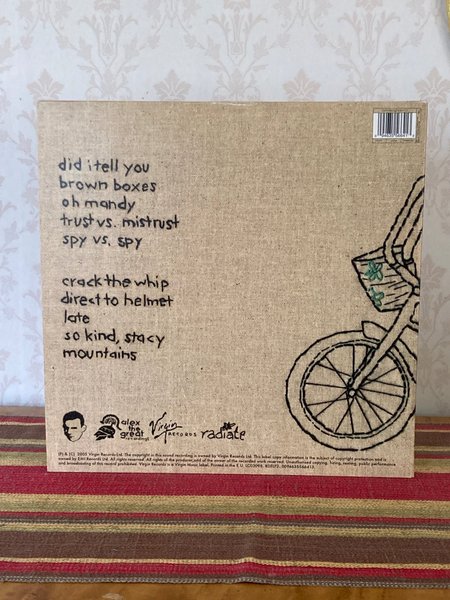 did i tell you
brown boxes
oh mandy
trust vs. mistrust
spy vs. spy
crack the whip
direct to helmet
late
so kind, stacy
mountains
alex
the
great
Virgin
RECORDS
radiate
(P) & (C) 2005 Virgin Records Ltd. The copyright in this sound recording is owned by Virgin Records Ltd. This label copy information is the subject of copyright protection and is
owned by EMI Records Ltd. All rights reserved. All rights of the producer and of the owner of the recorded work reserved. Unauthorised copying, hiring, renting, public performance
and broadcasting of this record prohibited. Virgin Records is a Virgin Music label. Printed in the E.U.